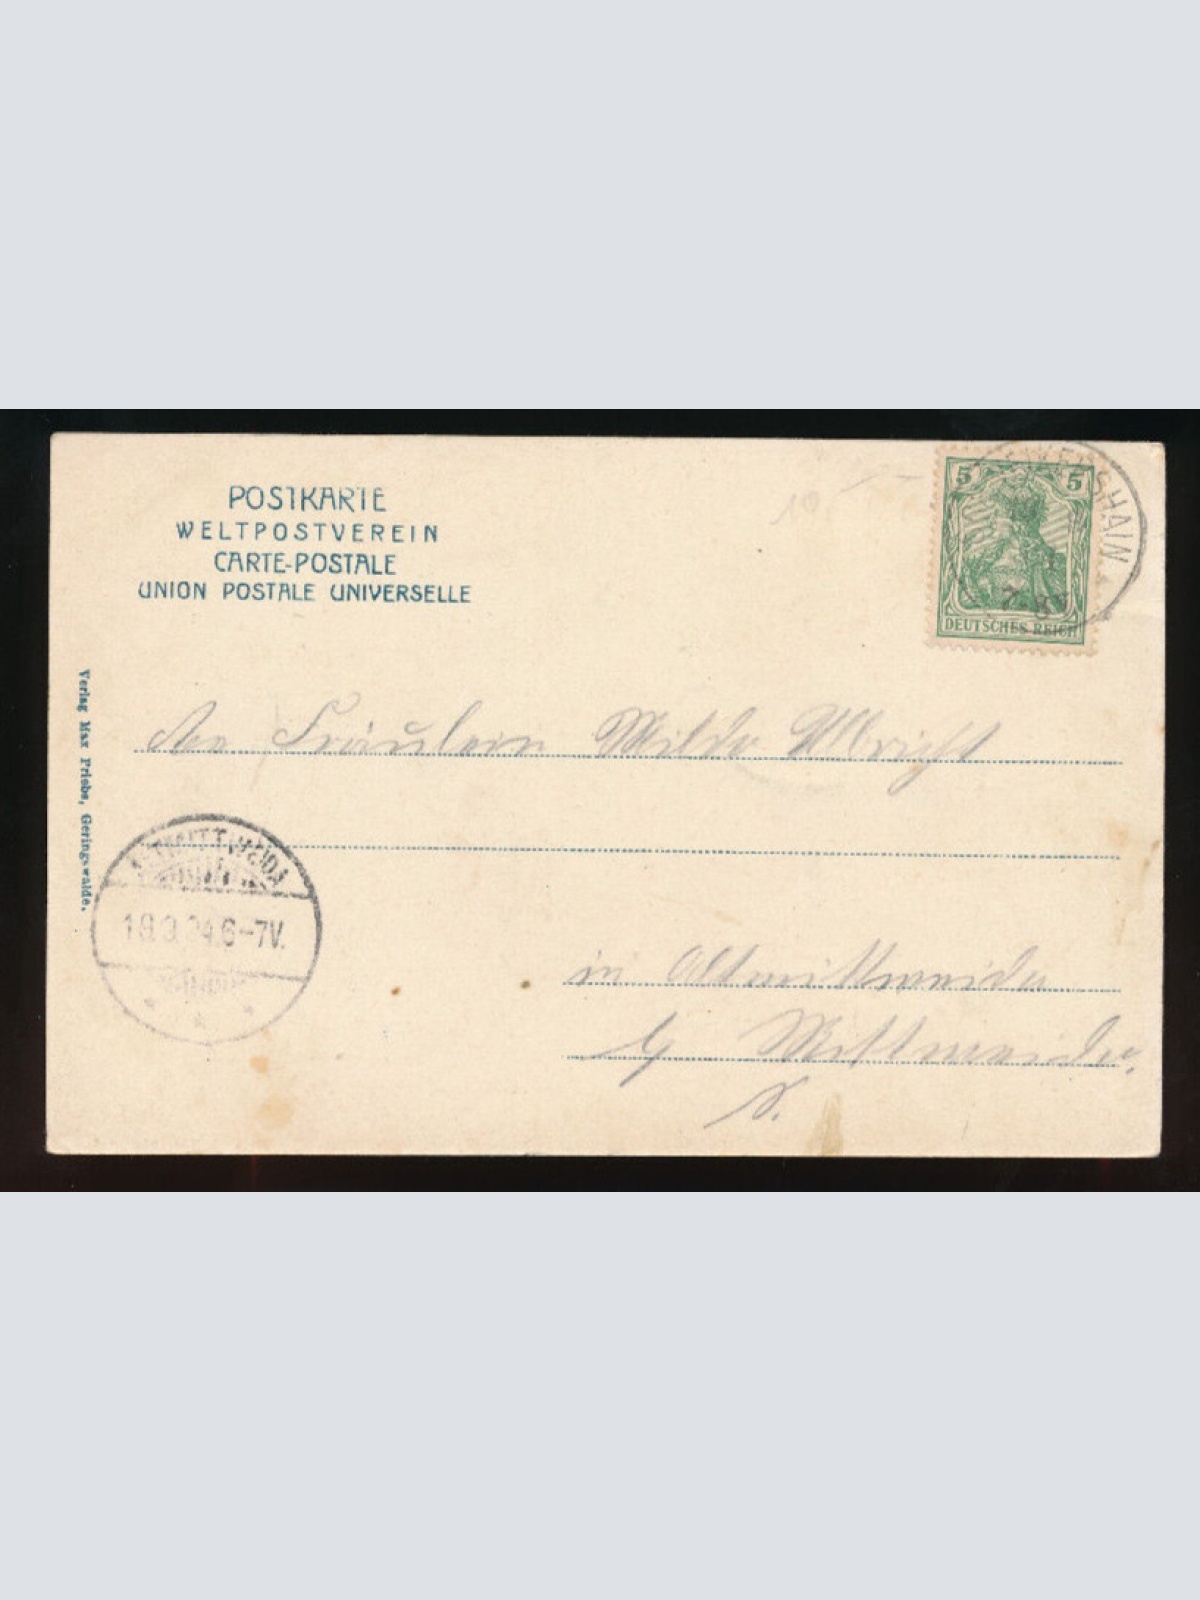 POSTKARTE
WELTPOSTVEREIN
CARTE-POSTALE
UNION POSTALE UNIVERSELLE
5 5
DEUTSCHES REICH
Verlag Max Friebe, Geringswalde.
Fräulein Milda Albrecht
ALTMITTWEIDA
18.3.04.6-7V.
in Altmittweida
b/ Mittweida.
S.